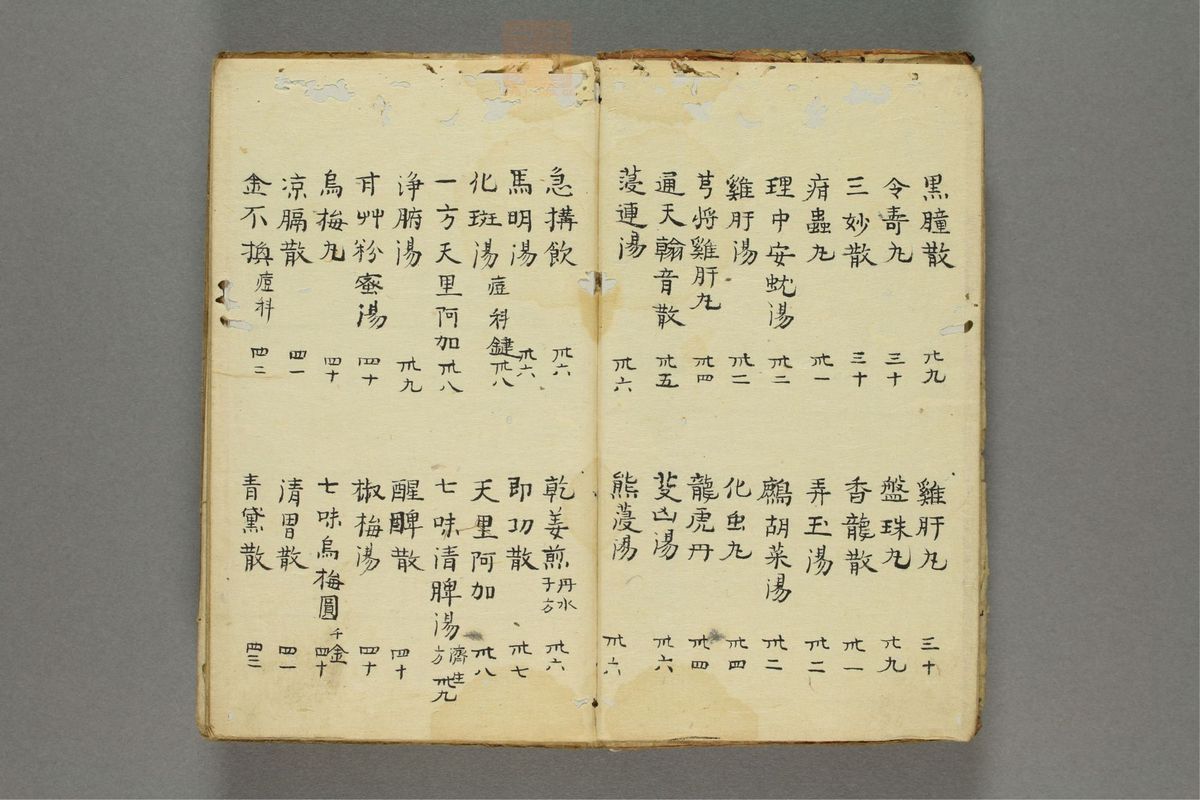 黒瞳散 廿九 雞肝丸 三十
令壽丸 三十 盤珠丸 廿九
三妙散 三十 香龍散 卅一
疳蟲丸 卅一 弄玉湯 卅二
理中安蚘湯 卅二 鷓胡菜湯 卅二
雞肝湯 卅二 化虫丸 卅四
芎將雞肝丸 卅四 龍虎丹 卅四
通天翰音散 卅五 凶湯 卅六
連湯 卅六 熊湯 卅六
急搆飲 卅六 乾姜煎 丹水子方 卅六
馬明湯 卅六 即功散 卅七
化斑湯 痘科鍵 卅八 天里阿加 卅八
一方天里阿加 卅八 七味清脾湯 濟生方 卅九
浄腑湯 卅九 醒脾散 四十
甘艸粉蜜湯 四十 椒梅湯 四十
烏梅丸 四十 七味烏梅圓 千金 四十
凉膈散 四一 清胃散 四一
金不換 痘科 四二 青黛散 四三